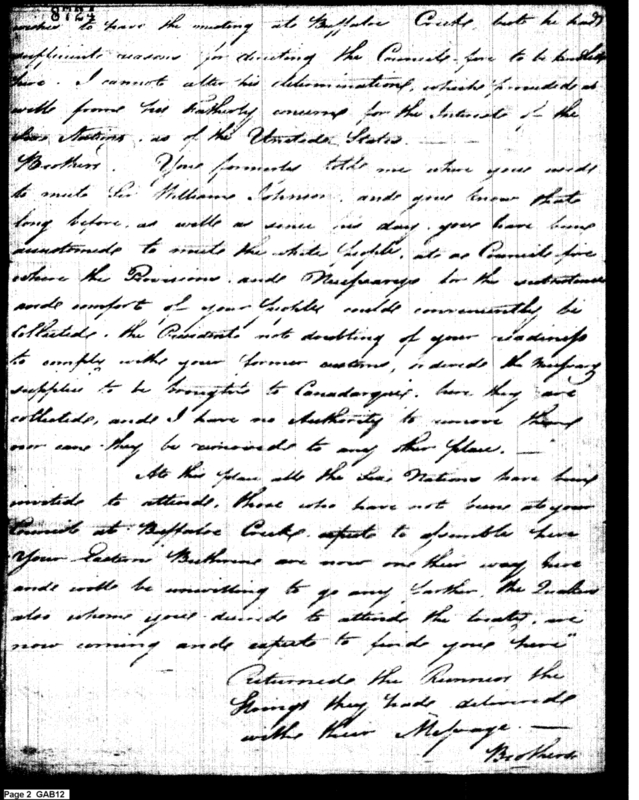 8724
wishes to have the meeting at Buffaloe Creeke, but he had
sufficient reasons for directing the Councile fire to be kindled
here. I cannot alter his determinations, which proceeded as
well from his Fatherly concern for the Interest of the
Six Nations, as of the United States. —
Brothers. Your formerly told me where you used
to meet Sir William Johnson, and you know that
long before, as well as since his day, you have been
accustomed to meet the white People, at a Councile fire
where the Provisions and Necessarys for the subsistance
and comfort of your peoples could conveniently be
Collected. the President not doubting of your readiness
to comply with your former customs, ordered the necessary
supplies to be brought to Canadarquie. here they are
collected, and I have no Authority to remove them
nor can they be removed to any other place. —
At this place all the Six Nations have been
invited to attend, those who have not been at your
Council at Buffaloe Creeke expect to assemble here
Your Eastern Brethrens are now on their way here
and will be unwilling to go any farther, the Quakers
also whome you desired to attend the treaty, are
now coming and expect to find you here"
Returned the Runners the
Strings they had delivered
with their Message. —
Brothers
Page 2 GAB12